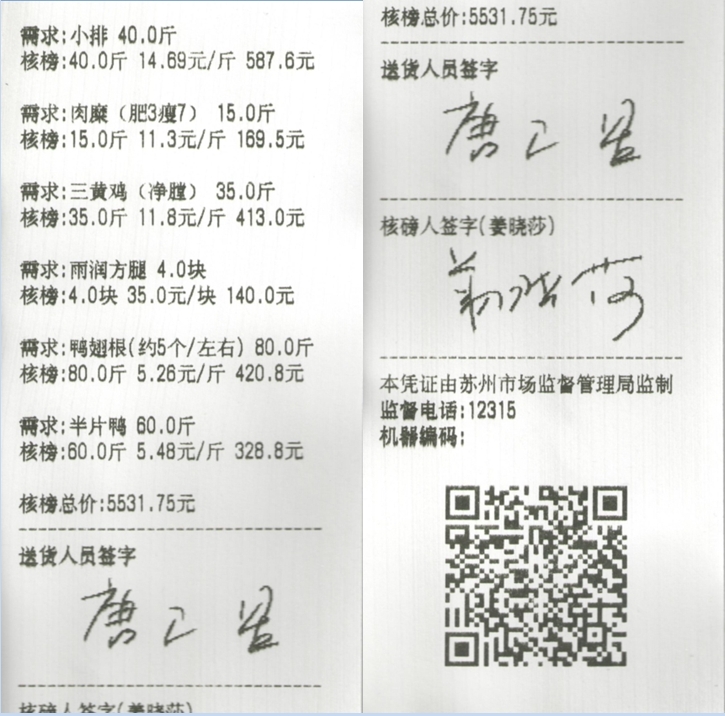 需求:小排 40.0斤
核榜:40.0斤 14.69元/斤 587.6元
需求:肉糜（肥3瘦7） 15.0斤
核榜:15.0斤 11.3元/斤 169.5元
需求:三黄鸡（净膛） 35.0斤
核榜:35.0斤 11.8元/斤 413.0元
需求:雨润方腿 4.0块
核榜:4.0块 35.0元/块 140.0元
需求:鸭翅根(约5个/左右) 80.0斤
核榜:80.0斤 5.26元/斤 420.8元
需求:半片鸭 60.0斤
核榜:60.0斤 5.48元/斤 328.8元
核榜总价:5531.75元
送货人员签字
核磅人签字(姜晓莎)
核榜总价:5531.75元
送货人员签字
核磅人签字(姜晓莎)
姜晓莎
本凭证由苏州市场监督管理局监制
监督电话:12315
机器编码: